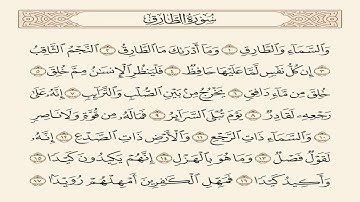 سُورَةُ الطَّارِقِ
وَالسَّمَآءِ وَالطَّارِقِ ١ وَمَآ أَدْرَىٰكَ مَا الطَّارِقُ ٢ النَّجْمُ الثَّاقِبُ
٣ إِن كُلُّ نَفْسٍ لَّمَّا عَلَيْهَا حَافِظٌ ٤ فَلْيَنظُرِ الْإِنسَٰنُ مِمَّ خُلِقَ ٥
خُلِقَ مِن مَّآءٍ دَافِقٍ ٦ يَخْرُجُ مِنۢ بَيْنِ الصُّلْبِ وَالتَّرَآئِبِ ٧ إِنَّهُۥ عَلَىٰ
رَجْعِهِۦ لَقَادِرٌ ٨ يَوْمَ تُبْلَى السَّرَآئِرُ ٩ فَمَا لَهُۥ مِن قُوَّةٍ وَلَا نَاصِرٍ
١٠ وَالسَّمَآءِ ذَاتِ الرَّجْعِ ١١ وَالْأَرْضِ ذَاتِ الصَّدْعِ ١٢ إِنَّهُۥ
لَقَوْلٌ فَصْلٌ ١٣ وَمَا هُوَ بِالْهَزْلِ ١٤ إِنَّهُمْ يَكِيدُونَ كَيْدًا ١٥
وَأَكِيدُ كَيْدًا ١٦ فَمَهِّلِ الْكَٰفِرِينَ أَمْهِلْهُمْ رُوَيْدًۢا ١٧